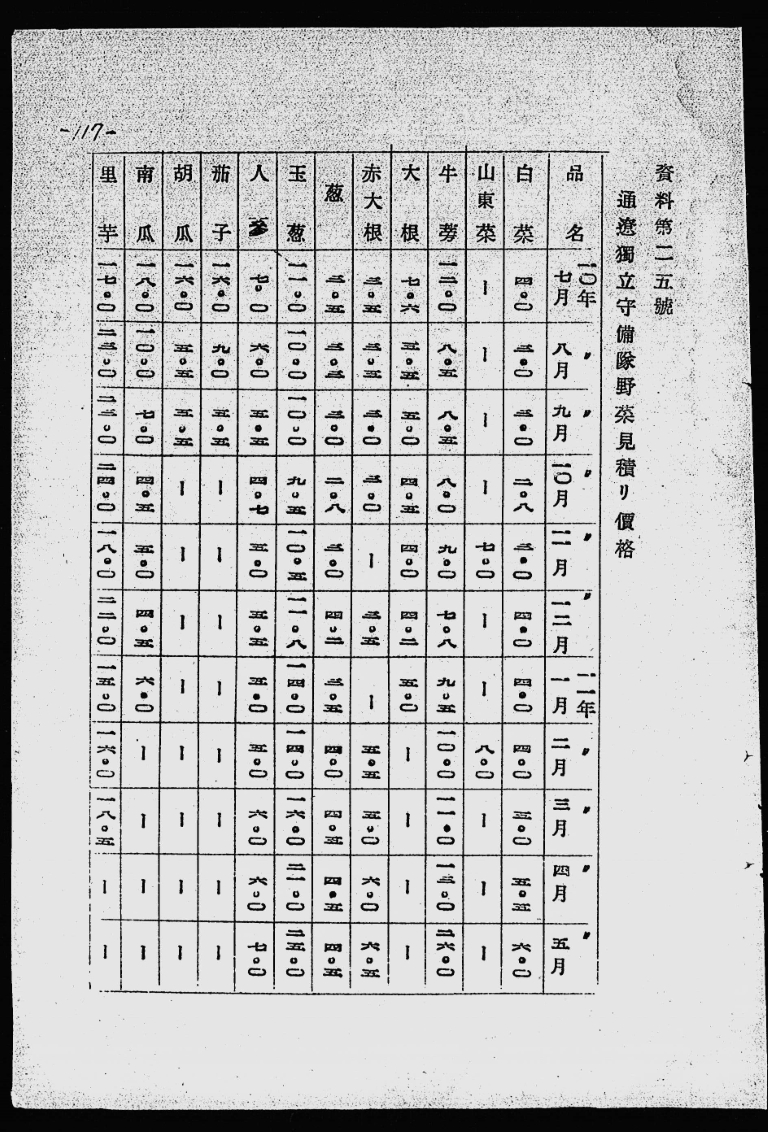 -117-
資料第二五號
通遼獨立守備隊野菜見積リ價格
品名 一〇年七月 〃八月 〃九月 〃一〇月 〃一一月 〃一二月 一一年一月 〃二月 〃三月 〃四月 〃五月
白菜 四.〇 三.〇 三.〇 二.八 三.〇 四.〇 四.〇 四.〇 五.〇 五.五 六.〇
山東菜 ー ー ー ー 七.〇 ー ー 八.〇 ー ー ー
牛蒡 一二.〇 八.五 八.五 八.〇 九.〇 七.八 九.五 一〇.〇 一一.〇 一三.〇 二六.〇
大根 七.六 五.五 五.〇 四.五 四.〇 四.二 五.〇 ー ー ー ー
赤大根 三.五 三.五 三.〇 三.〇 ー 三.五 ー 五.五 五.〇 六.〇 六.五
葱 三.五 三.三 三.〇 二.八 三.〇 四.二 三.五 四.〇 四.五 四.五 四.五
玉葱 一一.〇 一〇.〇 一〇.〇 九.五 一〇.五 一一.八 一四.〇 一四.〇 一六.〇 二一.〇 二五.〇
人参 七.〇 六.〇 五.五 四.七 五.〇 五.五 五.〇 五.〇 六.〇 六.〇 七.〇
茄子 一六.〇 九.〇 五.五 ー ー ー ー ー ー ー ー
胡瓜 一六.〇 五.五 五.五 ー ー ー ー ー ー ー ー
南瓜 一八.〇 一〇.〇 七.〇 四.五 五.〇 四.五 六.〇 ー ー ー ー
里芋 一七.〇 二三.〇 二三.〇 二四.〇 一八.〇 二二.〇 一五.〇 一六.〇 一八.五 ー ー